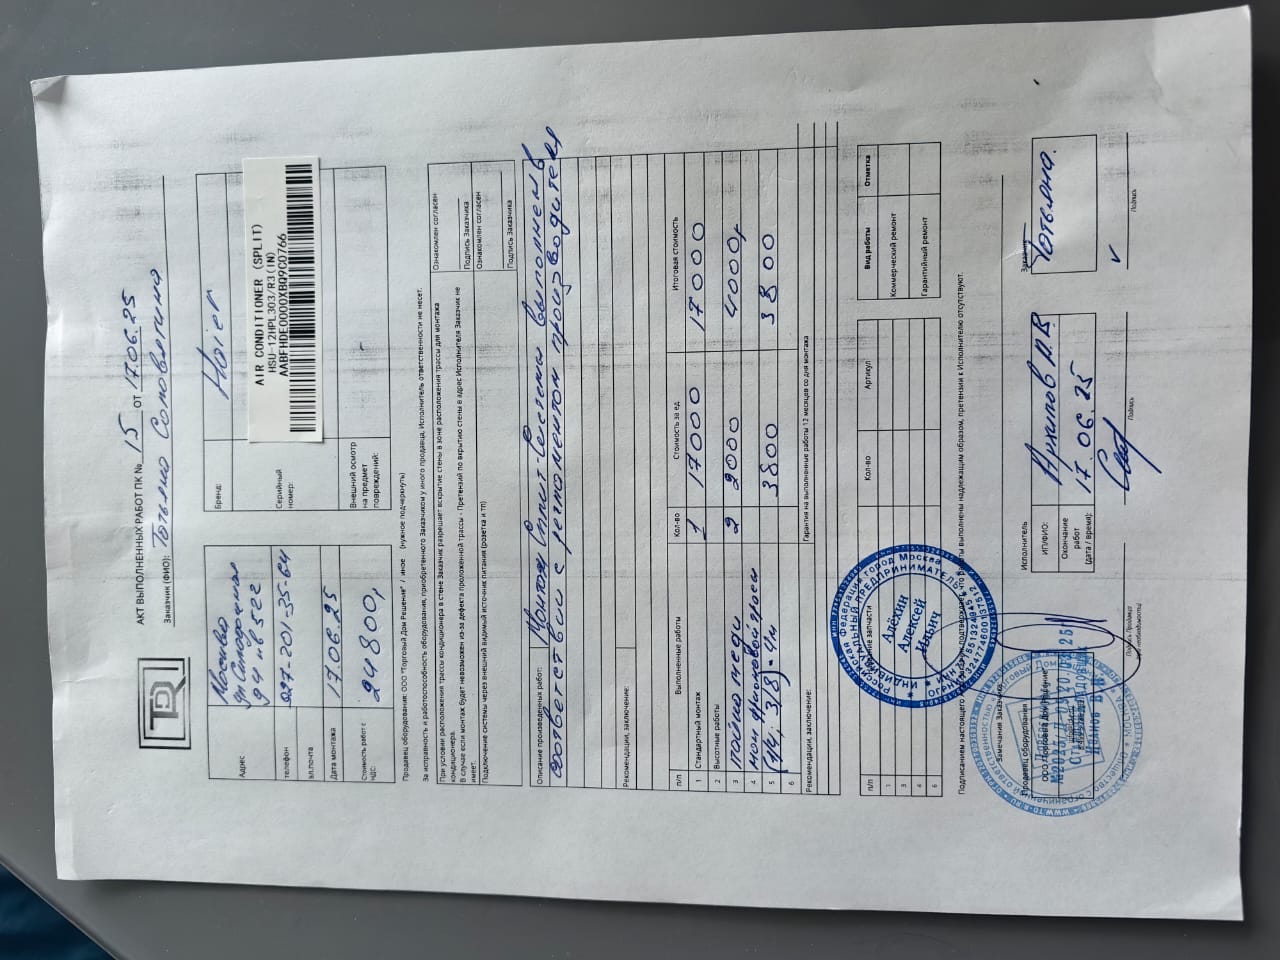 TDR
АКТ ВЫПОЛНЕННЫХ РАБОТ ПК № 15 от 17.06.25
Заказчик (ФИО): Татьяна
Адрес: Москва
ул
телефон
эл.почта
Дата монтажа 17.06.25
Стоимость работ с НДС: 24800,
Бренд: Haier
Серийный номер:
AIR CONDITIONER (SPLIT)
HSU-12HPL303/R3(IN)
AABFHDE0000XBQ9C0766
Внешний осмотр на предмет повреждений: -
Продавец оборудования: ООО "Торговый Дом Решение" / иное (нужное подчеркнуть)
За исправность и работоспособность оборудования, приобретенного Заказчиком у иного продавца, Исполнитель ответственности не несет.
При условии расположения трассы кондиционера в стене Заказчик разрешает вскрытие стены в зоне расположения трассы для монтажа кондиционера.
В случае если монтаж будет невозможен из-за дефекта проложенной трассы - Претензий по вкрытию стены в адрес Исполнителя Заказчик не имеет.
Подключение системы через внешний видимый источник питания (розетка и тп)
Ознакомлен согласен
Подпись Заказчика
Ознакомлен согласен
Подпись Заказчика
Описание произведенных работ: Монтаж Сплит-Системы выполнен в
соответствии с регламентом производителя
Рекомендации, заключение:
п/п Выполненные работы Кол-во Стоимость за ед Итоговая стоимость
1 Стандартный монтаж 1 17000 17000
2 Высотные работы
3 пайка меди 2 2000 4000,
4 фреоновой трассы
5 (1/4, 3/8) - 4м 3800 3800
6
Рекомендации, заключение:
Гарантия на выполненные работы 12 месяцев со дня монтажа
п/п запчасти Кол-во Артикул
1
3
4
6
Вид работы Отметка
Коммерческий ремонт
Гарантийный ремонт
Российская Федерация город Москва
ИНДИВИДУАЛЬНЫЙ ПРЕДПРИНИМАТЕЛЬ
Алёхин
Алексей
Ильич
Подписанием настоящего выполнены надлежащим образом, претензии к Исполнителю отсутствуют.
Замечания Заказчика
Продавец оборудования
ООО "Торговый Дом Решение"
Подпись Продавца
Исполнитель
ИП/ФИО:
Окончание работ (дата / время): 17.06.25
Подпись
Заказчик
Татьяна.
Подпись